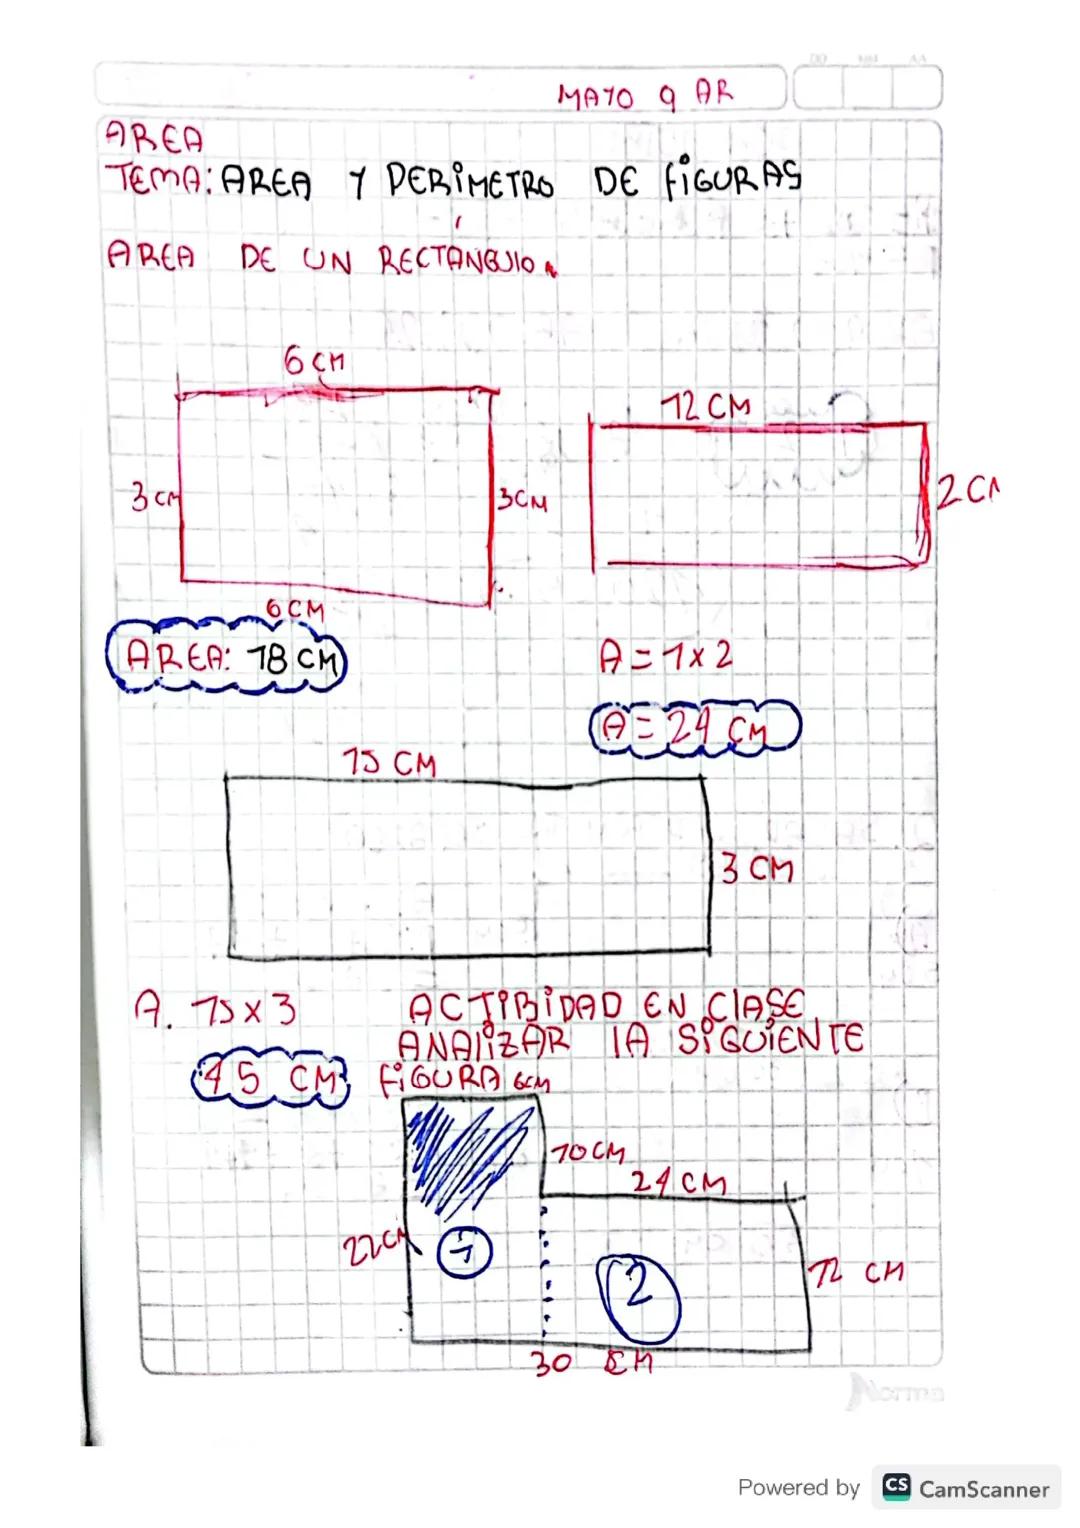 DD MM AA
MAYO 9 AR
AREA
TEMA: AREA Y PERIMETRO DE FIGURAS
AREA DE UN RECTANGUlO
6 CM
12 CM
3 CM
3CM
2 CM
6 CM
AREA: 18 CM
A = 1 x 2
A = 24 CM
15 CM
3 CM
A. 15 x 3
45 CM
ACTIBIDAD EN ClASE
ANAlIZAR lA SIGUIENTE
FIGURA 6CM
10 CM
24 CM
22 CM
1
2
12 CM
30 CM
Norma
Powered by CS CamScanner